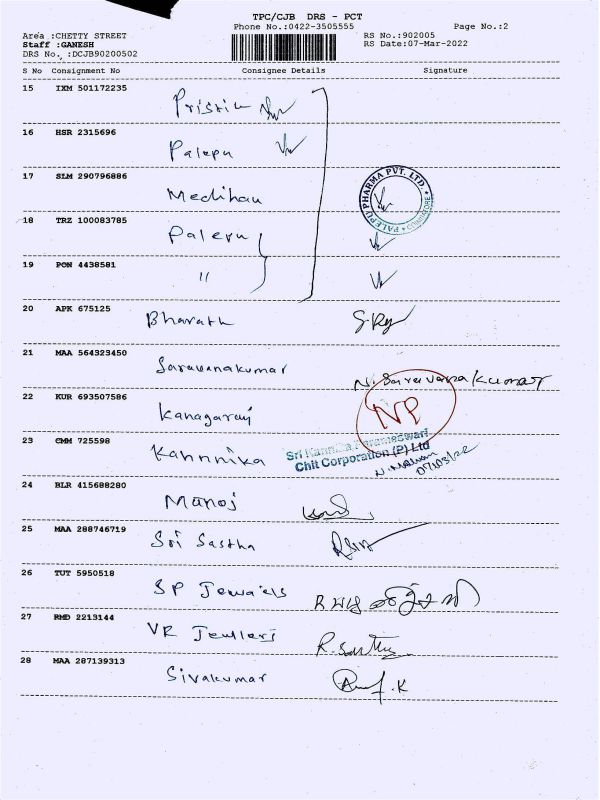 TPC/CJB DRS - PCT
Phone No.:0422-3505555
Page No.:2
Area :CHETTY STREET
Staff :GANESH
DRS No. :DCJB90200502
RS No.:902005
RS Date:07-Mar-2022
S No Consignment No Consignee Details Signature
15 IXM 501172235
16 HSR 2315696 Palepu
17 SLM 290796886 Medihau
PALEPU PHARMA PVT. LTD. * COIMBATORE *
18 TRZ 100083785 Palepu
19 PON 4438581 "
20 APK 675125 Bharath
21 MAA 564323450 Saravanakumar N. Saravana Kumar
22 KUR 693507586 Kanagaraj NP
23 CMM 725598 Kannnika
Sri Kannika Parameswari
Chit Corporation (P) Ltd
07/03/22
24 BLR 415688280 Manoj
25 MAA 288746719 Sri Sastha
26 TUT 5950518 SP Jewaels
27 RMD 2213144 VR Jewlleri
28 MAA 287139313 Sivakumar